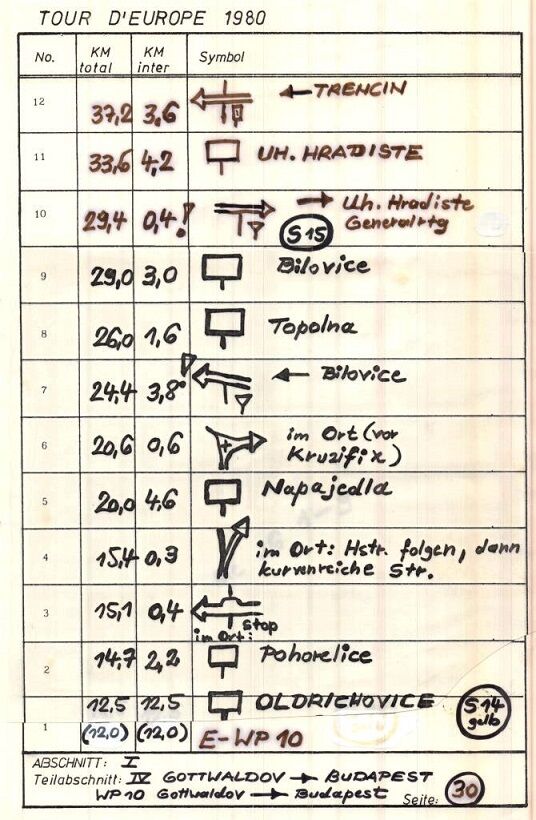 TOUR D'EUROPE 1980
No. KM total KM inter Symbol
12 37,2 3,6 ← TRENCIN
11 33,6 4,2 UH. HRADISTE
10 29,4 0,4 ! → Uh. Hradiste
S15 Generalrtg
9 29,0 3,0 Bilovice
8 26,0 1,6 Topolna
7 24,4 3,8 ! ← Bilovice
6 20,6 0,6 im Ort (vor
Kruzifix)
5 20,0 4,6 Napajedla
4 15,4 0,3 im Ort: Hstr. folgen, dann
kurvenreiche Str.
3 15,1 0,4 stop
im Ort:
2 14,7 2,2 Pohorelice
1 12,5 12,5 OLDRICHOVICE S14 gelb
(12,0) (12,0) E-WP 10
ABSCHNITT: I
Teilabschnitt: IV GOTTWALDOV → BUDAPEST
WP 10 Gottwaldov → Budapest Seite: 30